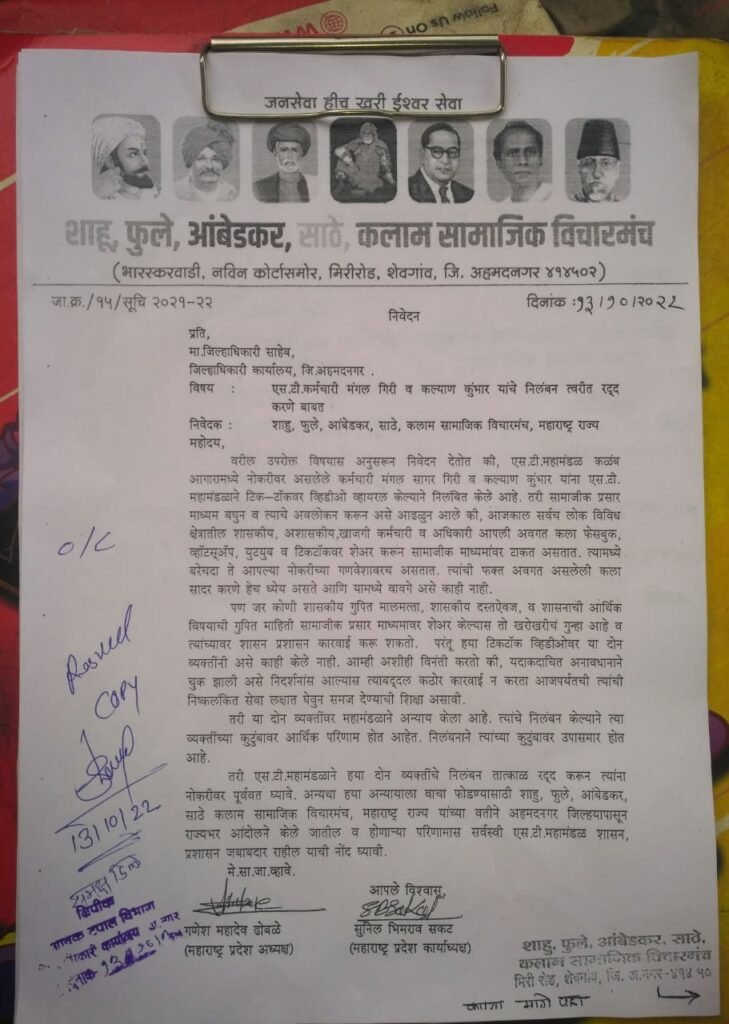 Follow Us On
जनसेवा हीच खरी ईश्वर सेवा
शाहू, फुले, आंबेडकर, साठे, कलाम सामाजिक विचारमंच
(भारस्करवाडी, नविन कोर्टासमोर, मिरीरोड, शेवगांव, जि. अहमदनगर ४१४५०२)
जा.क्र./१५/सूचि २०२१-२२
दिनांक :१३/१०/२०२२
निवेदन
प्रति,
मा.जिल्हाधिकारी साहेब,
जिल्हाधिकारी कार्यालय, जि.अहमदनगर .
विषय : एस.टी.कर्मचारी मंगल गिरी व कल्याण कुंभार यांचे निलंबन त्वरीत रद्द
करणे बाबत
निवेदक : शाहु, फुले, आंबेडकर, साठे, कलाम सामाजिक विचारमंच, महाराष्ट्र राज्य
महोदय,
वरील उपरोक्त विषयास अनुसरून निवेदन देतोत की, एस.टी.महामंडळ कळंब
आगारामध्ये नोकरीवर असलेले कर्मचारी मंगल सागर गिरी व कल्याण कुंभार यांना एस.टी.
महामंडळाने टिक–टॉकवर व्हिडीओ व्हायरल केल्याने निलंबित केले आहे. तरी सामाजीक प्रसार
माध्यम बघुन व त्याचे अवलोकन करून असे आढळुन आले की, आजकाल सर्वच लोक विविध
क्षेत्रातील शासकीय, अशासकीय,खाजगी कर्मचारी व अधिकारी आपली अवगत कला फेसबुक,
व्हॉटसॲप, युटयुब व टिकटॉकवर शेअर करून सामाजीक माध्यमांवर टाकत असतात. त्यामध्ये
बरेचदा ते आपल्या नोकरीच्या गणवेशावरच असतात. त्यांची फक्त अवगत असलेली कला
सादर करणे हेच ध्येय असते आणि यामध्ये वावगे असे काही नाही.
पण जर कोणी शासकीय गुपित मालमत्ता, शासकीय दस्तऐवज, व शासनाची आर्थिक
विषयाची गुपित माहिती सामाजीक प्रसार माध्यमावर शेअर केल्यास तो खरोखरीचं गुन्हा आहे व
त्यांच्यावर शासन प्रशासन कारवाई करू शकतो. परंतू हया टिकटॉक व्हिडीओवर या दोन
व्यक्तींनी असे काही केले नाही. आम्ही अशीही विनंती करतो की, यदाकदाचित अनावधानाने
चुक झाली असे निदर्शनांस आल्यास त्याबद्दल कठोर कारवाई न करता आजपर्यतची त्यांची
निष्कलंकित सेवा लक्षात घेवुन समज देण्याची शिक्षा असावी.
तरी या दोन व्यक्तींवर महामंडळाने अन्याय केला आहे. त्यांचे निलंबन केल्याने त्या
व्यक्तींच्या कुटुंबावर आर्थिक परिणाम होत आहेत. निलंबनाने त्यांच्या कुटुंबावर उपासमार होत
आहे.
तरी एस.टी.महामंडळाने हया दोन व्यक्तींचे निलंबन तात्काळ रद्द करून त्यांना
नोकरीवर पूर्ववत घ्यावे. अन्यथा हया अन्यायाला वाचा फोडण्यासाठी शाहु, फुले, आंबेडकर,
साठे कलाम सामाजिक विचारमंच, महाराष्ट्र राज्य यांच्या वतीने अहमदनगर जिल्हयापासून
राज्यभर आंदोलने केले जातील व होणाऱ्या परिणामास सर्वस्वी एस.टी.महामंडळ शासन,
प्रशासन जबाबदार राहील याची नोंद घ्यावी.
मे.सा.जा.व्हावे.
आपले विश्वासु,
गणेश महादेव ढोबळे
(महाराष्ट्र प्रदेश अध्यक्ष)
सुनिल भिमराव सकट
(महाराष्ट्र प्रदेश कार्याध्यक्ष)
O/C
COPY
13/10/22
लिपीक
टपाल विभाग
शाहू, फुले, आंबेडकर, साठे,
कलाम सामाजिक विचारमंच
मिरी रोड, शेवगांव, जि. अ.नगर-४१४ ५०
मागे पहा